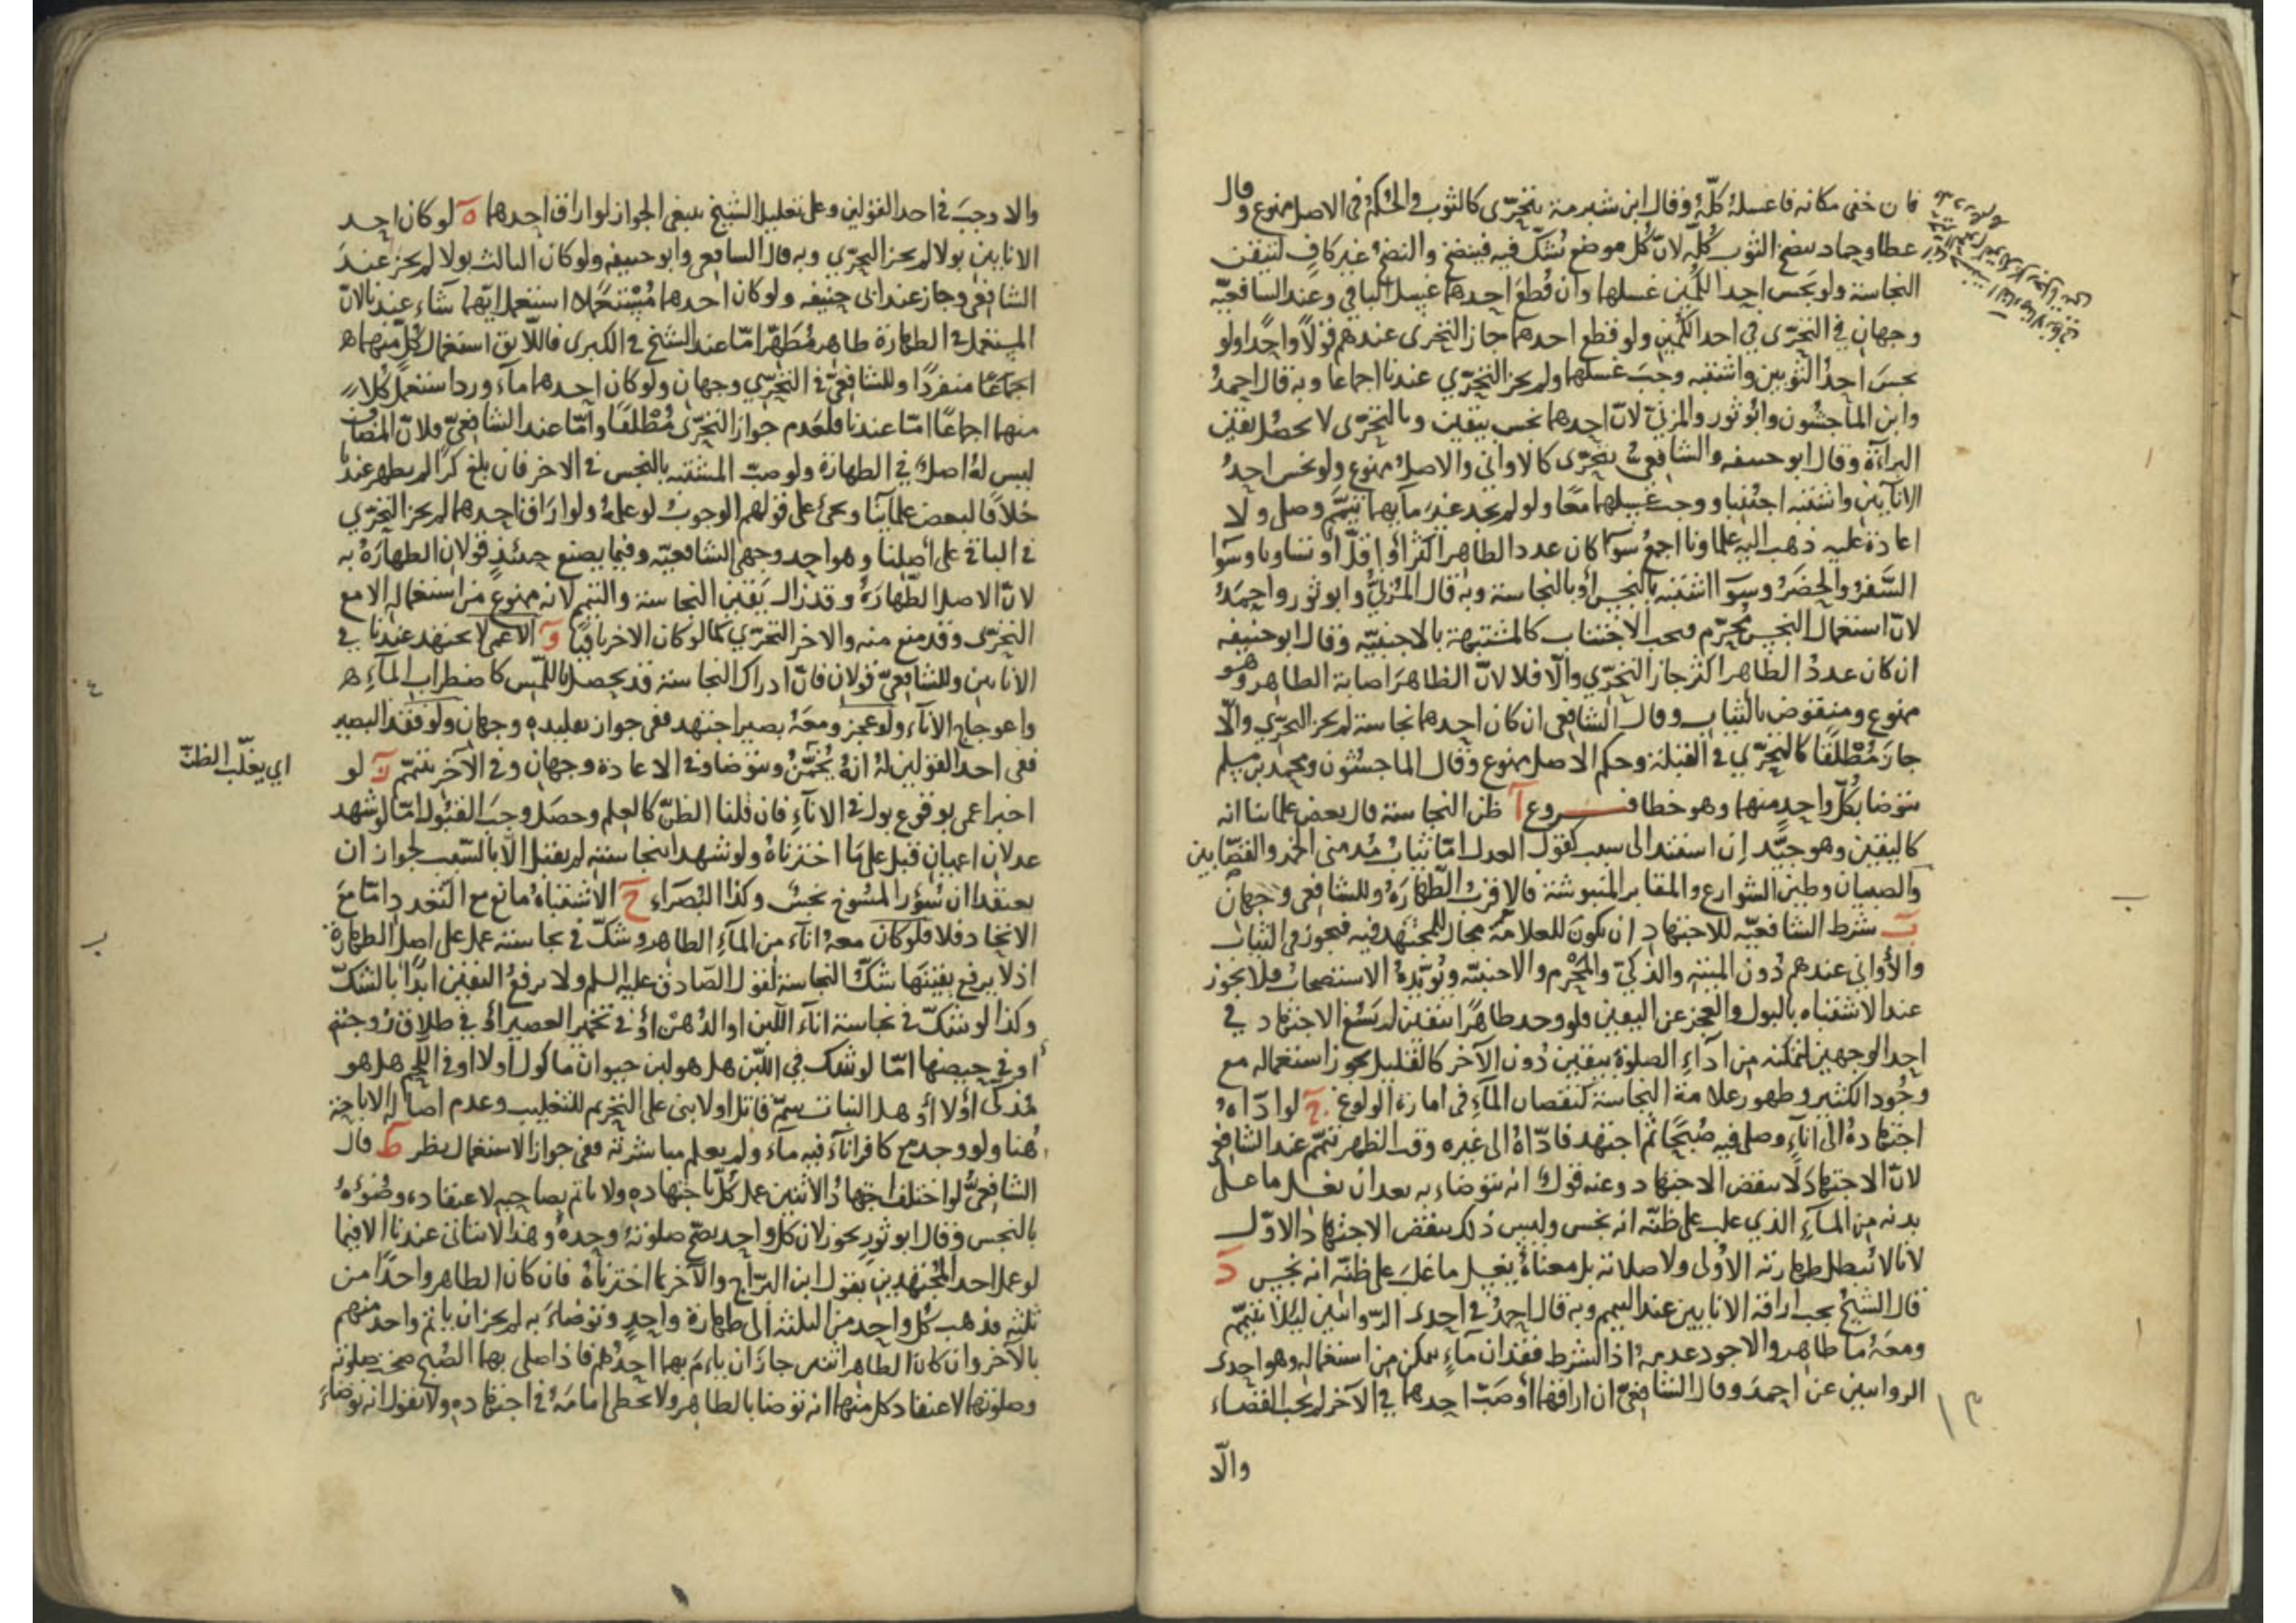 فان خفى مكانه فاغسله كلّه وقال ابن شبرمة يتحرّى كالثوب والحكم فى الاصل ممنوع وقال
عطا وحماد ينضح الثوب كلّه لانّ كل موضع نشكّ فيه فينضح والنضح غير كافٍ لتيقّن
النجاسة ولو نجس احد الكمّين غسلهما وان قطع احدهما غسل الباقي وعند الشافعيّة
وجهان في التحرّى في احد الكمّين ولو قطع احدهما جاز التحرى عندهم قولاً واحدًا ولو
نجس احد الثوبين واشتبه وجب غسلهما ولم يجز التحرّي عندنا اجماعا وبه قال احمد
وابن الماجشون وابو ثور والمزنيّ لانّ احدهما نجس بيقين وبالتحرّى لا يحصل يقين
البرآءة وقال ابو حنيفه والشافعى يتحرّى كالاواني والاصل ممنوع ولو نجس احد
الانآئين واشتبه اجتنبا ووجب غسلهما معًا ولو لم يجد غير مآئهما تيمّم وصلى ولا
اعادة عليه ذهب اليه علماونا اجمع سوآ كان عدد الطاهر اكثر او اقلّ او تساويا وسوآ
السَّفر والحضر وسوآ اشتبه بالنجس او بالنجاسة وبه قال المزنيّ وابو ثور واحمد
لانّ استعمال النجس محرّم فيجب الاجتناب كالمشتبهة بالاجنبيّه وقال ابو حنيفه
ان كان عدد الطاهر اكثر جاز التحرّي والّا فلا لانّ الظاهر اصابة الطاهر وهو
ممنوع ومنقوض بالثياب وقال الشافعى ان كان احدهما نجاسة لم يجز التحرّي والّا
جاز مطلقًا كالتحرّي في القبلة وحكم الاصل ممنوع وقال الماجشون ومحمد بن مسلم
يتوضا بكلّ واحد منهما وهو خطا فروع آ ظن النجاسة قال بعض علمائنا انه
كاليقين وهو جيّد إن استند الى سبب كقول العدل امّا ثياب مدمنى الخمر والقصّابين
والصبيان وطين الشوارع والمقابر المنبوشة فالاقرب الطّهارة وللشافعى وجهان
بَ شرط الشافعيّه للاجتهاد ان يكون للعلامة مجال للمجتهد فيه فيجوز فى الثياب
والأوانى عندهم دون الميتة والذكيّ والمحرم والاجنبيّة ويؤيّده الاستصحاب فلا يجوز
عند الاشتباه بالبول والعجز عن اليقين فلو وجد طاهرًا بيقين لم يسغ الاجتهاد في
احد الوجهين لتمكّنه من ادآء الصلوة بيقين دون الآخر كالقليل يجوز استعماله مع
وجود الكثير وظهور علامة النجاسة كنقصان المآء فى امارة الولوغ جَ لو ادّاه
اجتهاده الى انآء وصلى فيه صبحًا ثم اجتهد فادّاه الى غيره وقت الظهر تيمّم عند الشافعى
لانّ الاجتهاد لا ينقض الاجتهاد وعنه قول انه يتوضاء به بعد ان يغسل ما على
بدنه من المآء الذي غلب على ظنّه انه نجس وليس ذلك ينقض الاجتهاد الاوّل
لانا لا نبطل طهارته الأولى ولا صلاته بل معناه يغسل ما غلب على ظنّه انه نجس دَ
قال الشيخ يجب اراقة الانائين عند التيمم وبه قال احمد في احدى الرّوايتين ليلا يتيمّم
ومعه ما طاهر والاجود عدمه اذ الشرط فقدان مآء يمكن من استعماله وهو احدى
الروايتين عن احمد وقال الشافعىّ ان اراقهما او صبّ احدهما في الآخر لم يجب القضاء
والّا
والا وجب فى احد القولين وعلى تعليل الشيخ ينبغى الجواز لو اراق احدهما هَ لو كان احد
الانائين بولا لم يجز التحرّي وبه قال الشافعى وابو حنيفه ولو كان الثالث بولا لم يجز عند
الشافعى وجاز عند ابى حنيفه ولو كان احدهما مستعملا استعمل ايّهما شآء عندنا لانّ
المستعمل فى الطهارة طاهر مطهّر امّا عند الشيخ فى الكبرى فاللّايق استعمال كلّ منهما
اجماعًا منفردًا وللشافعيّ في التحرّي وجهان ولو كان احدهما مآء ورد استعمل كلا
منهما اجماعًا امّا عندنا فلعدم جواز التحرّى مطلقًا وامّا عند الشافعيّ فلانّ المضاف
ليس له اصل في الطهارة ولو صبّ المشتبه بالنجس في الاخر فان بلغ كرًا لم يطهر عندنا
خلافًا لبعض علمآئنا ويجئ على قولهم الوجوب لو علمه ولو اراق احدهما لم يجز التحرّي
في الباقى على أصلنا وهو احد وجهى الشافعيّه وفيما يصنع حينئذ قولان الطهارة به
لانّ الاصل الطّهارة وقد زال يقين النجاسة والتيمم لانه ممنوع من استعماله الا مع
التحرّى وقد منع منه والاخر التحرّي كما لو كان الاخر باقيًا وَ الاعمى لا يجتهد عندنا في
الانائين وللشافعيّ قولان فانّ ادراك النجاسة قد يحصل باللّمس كاضطراب المآء
واعوجاج الانآء ولو عجز ومعه بصير اجتهد ففى جواز تقليده وجهان ولو فقد البصير
ففى احد القولين له انه يخمّن ويتوضا وفى الاعادة وجهان وفي الآخر يتيمّم زَ لو
اى يغلّب الظنّ
اخبر اعمى بوقوع بول فى الانآء فان قلنا الظنّ كالعلم وحصل وجب القبول امّا لو شهد
عدلان اعميان قبل على ما اخترناه ولو شهدا بنجاسته لم يقبل الّا بالسّبب لجواز ان
يعتقد ان سؤر المسوخ نجس وكذا البُصَراء حَ الاشتباه مانع مع التعدد امّا مع
الاتحاد فلا فلو كان معه انآء من المآء الطاهر وشكّ في نجاسته عمل على اصل الطهارة
اذ لا يرفع يقينها شكّ النجاسة لقول الصّادق عليه السلم ولا يرفع اليقين ابدًا بالشكّ
وكذا لو شكّ في نجاسة انآء اللّبن او الدّهن او في تخمّر العصير او في طلاق زوجته
او في حيضها امّا لو شك في اللّبن هل هو لبن حيوان ماكول او لا او في اللّحم هل هو
مذكّى او لا او هل النبات سمّ قاتل او لا بنى على التحريم للتغليب وعدم اصالة الاباحة
هنا ولو وجد مع كافر انآء فيه مآء ولم يعلم مباشرته ففى جواز الاستعمال نظر طَ قال
الشافعىّ لو اختلف اجتهاد الاثنين عمل كلّ باجتهاده ولا ياتم بصاحبه لاعتقاده وضوءه
بالنجس وقال ابو ثور يجوز لان كل واحد تصحّ صلوته وحده وهذا لا ياتى عندنا الا فيما
لو عمل احد المجتهدين بقول ابن البرّاج والآخر بما اخترناه فان كان الطاهر واحدًا من
ثلثه فذهب كل واحد من الثلثه الى طهارة واحد وتوضاء به لم يجز ان ياتم واحد منهم
بالآخر وان كان الطاهر اثنين جاز ان يؤم بهما احدهم فاذا صلى بهما الصّبح صحّت صلوته
وصلوتهما لاعتقاد كل منهما انه توضا بالطاهر ولا يخطى امامه في اجتهاده ولا نقول انه توضاء